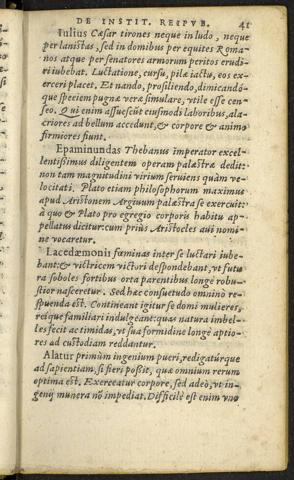 DE INSTIT. REIPVB. 41
Iulius Cæsar tirones neque in ludo, neque
per lanistas, sed in domibus per equites Roma-
nos atque per senatores armorum peritos erudi-
ri iubebat. Luctatione, cursu, pilæ iactu, eos ex-
erceri placet. Et nando, prosiliendo, dimicandó-
que speciem pugnæ veræ simulare, vtile esse cen-
seo. Qui enim assuescũt eiusmodi laboribus, ala-
criores ad bellum accedunt, & corpore & animo
firmiores fiunt.
Epaminundas Thebanus imperator excel-
lentissimus diligentem operam palæstræ dedit:
non tam magnitudini virium seruiens quàm ve-
locitati. Plato etiam philosophorum maximus
apud Aristonem Argiuum palæstra se exercuit:
à quo & Plato pro egregio corporis habitu ap-
pellatus dicitur: cum priùs Aristocles aui nomi-
ne vocaretur.
Lacedæmonii fœminas inter se luctari iube-
bant: & victricem victori despondebant, vt futu
ra soboles fortibus orta parentibus longè robu-
stior nasceretur. Sed hæc consuetudo omninò re-
spuenda est. Contineant igitur se domi mulieres,
reíque familiari indulgeant: quas natura imbel-
les fecit ac timidas, vt sua formidine longè aptio-
res ad custodiam reddantur.
Alatur primùm ingenium pueri, redigatúrque
ad sapientiam, si fieri possit, quæ omnium rerum
optima est. Exerceatur corpore, sed adeò, vt in-
genij munera nõ impediat. Difficilè est enim vno